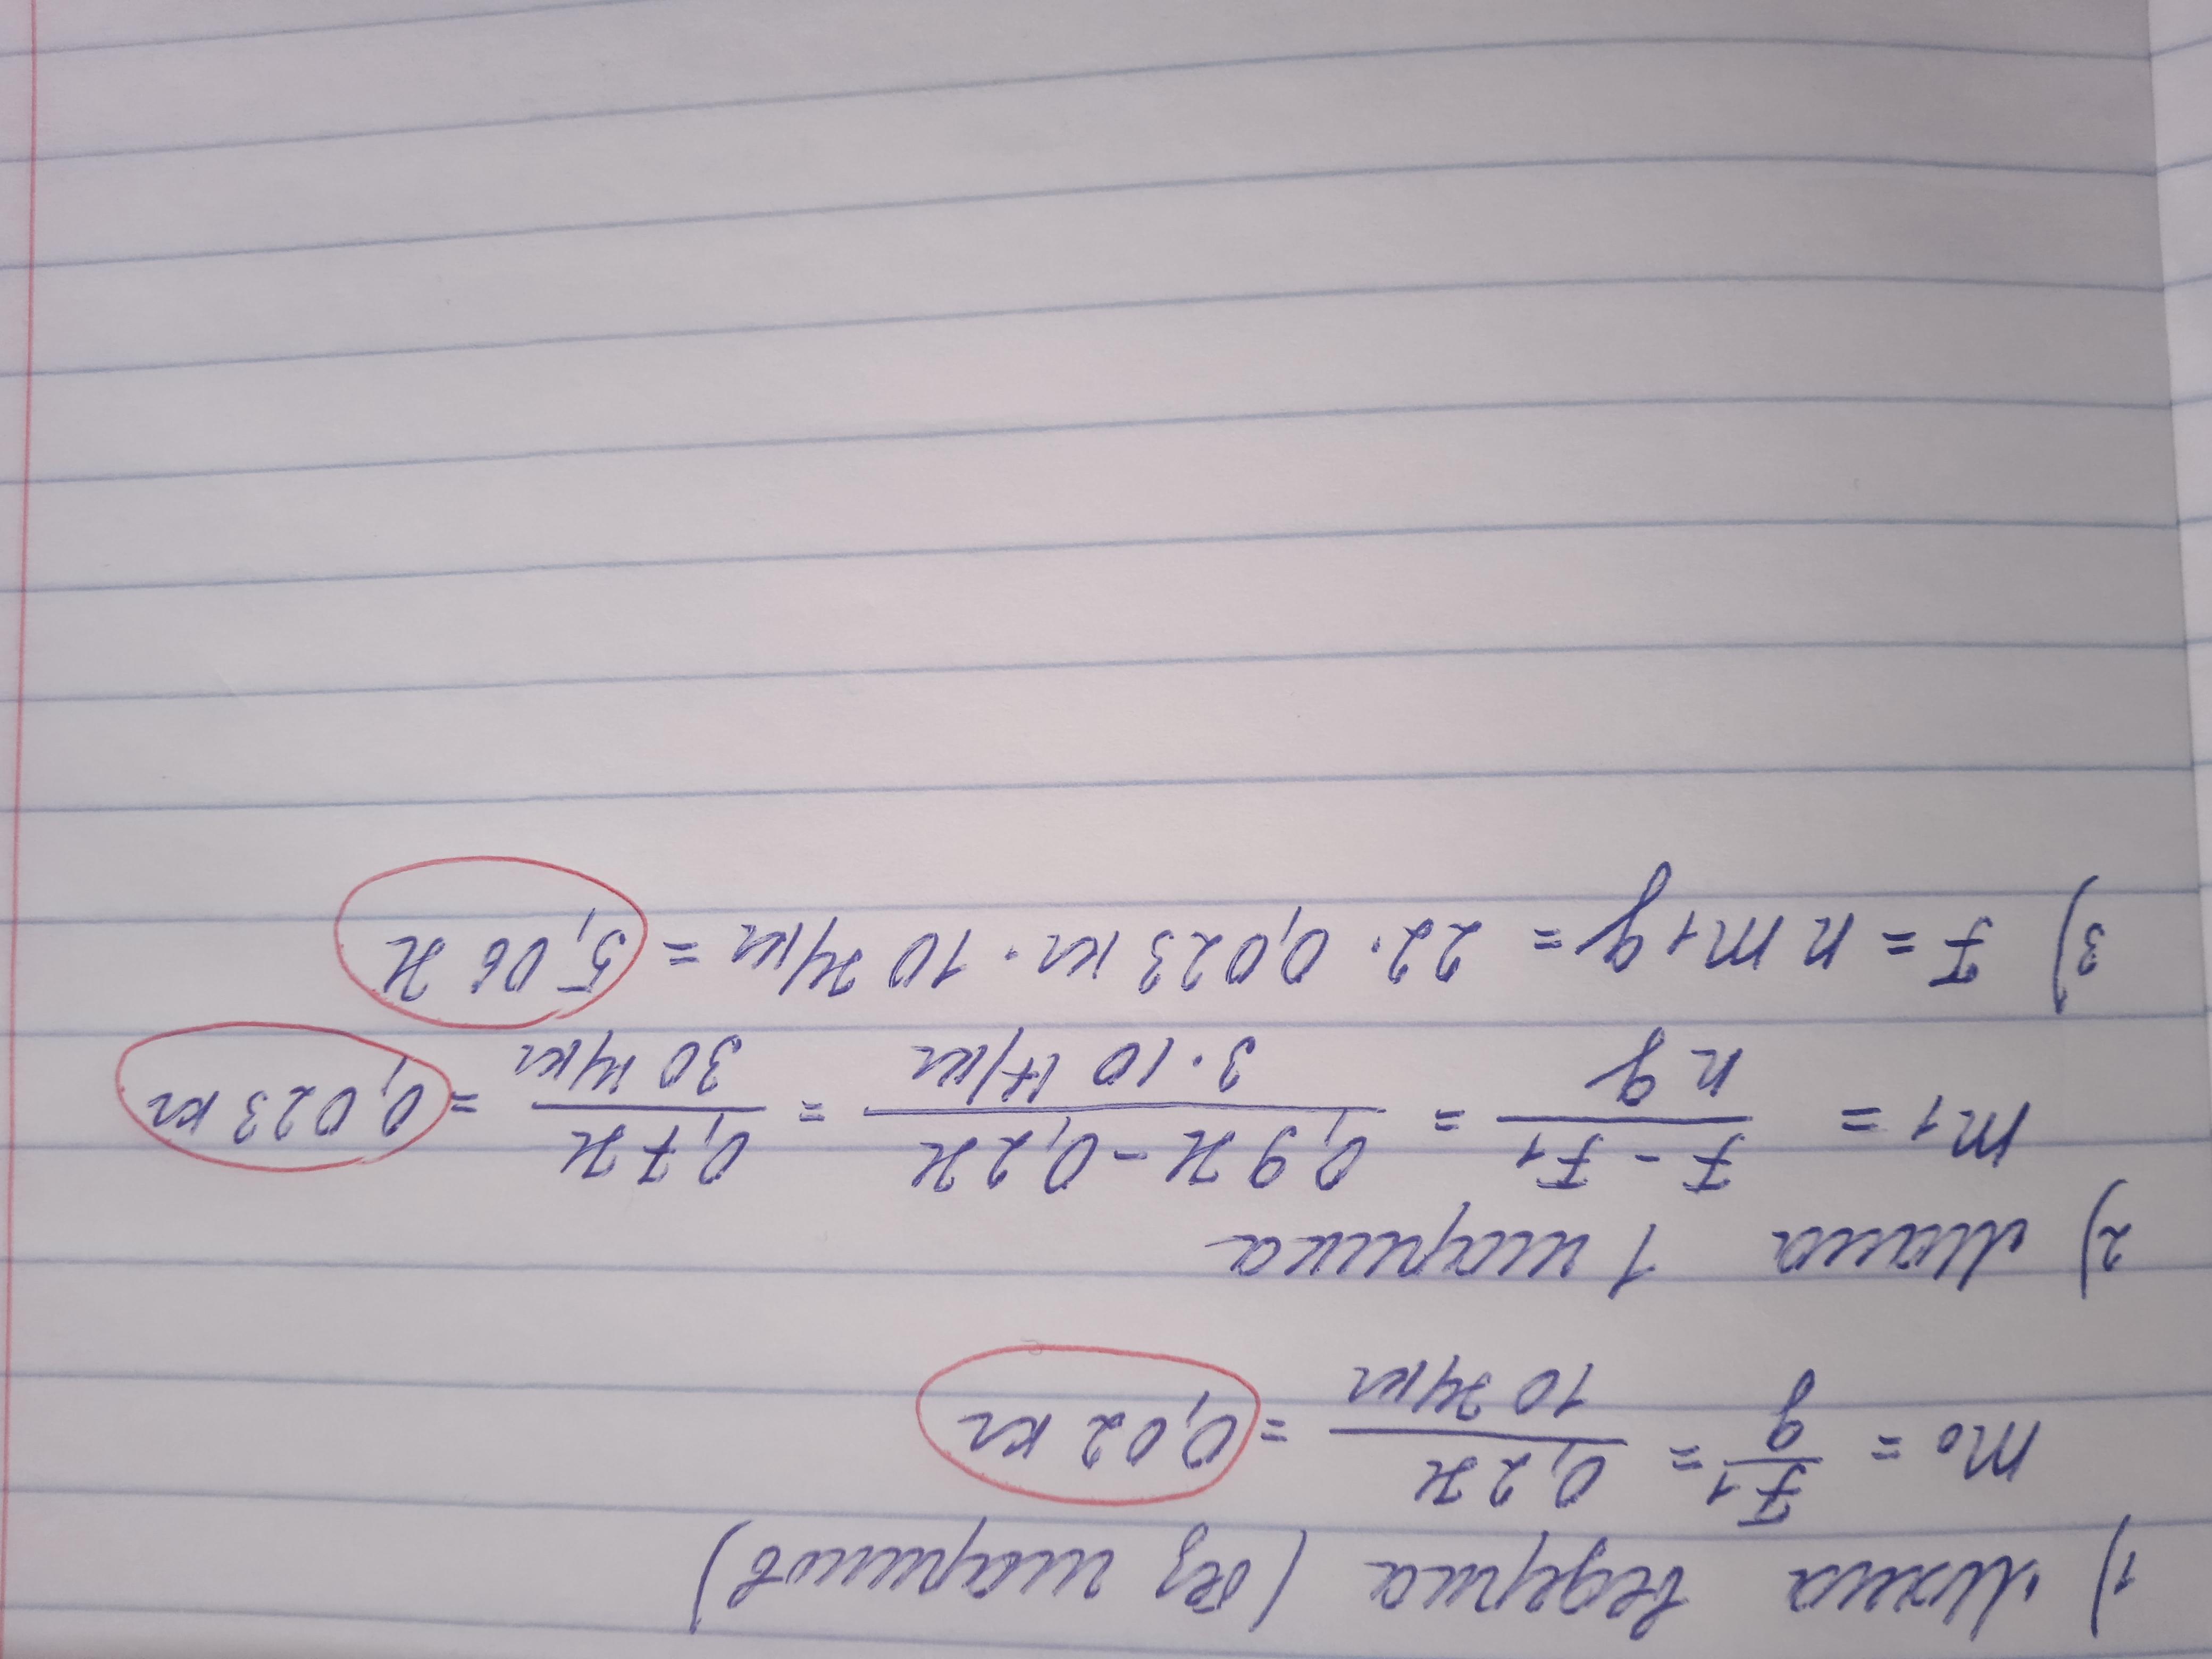 1) Масса ведерка (без шариков)
m₀ = F1/g = 0,2 Н / 10 Н/кг = 0,02 кг
2) Масса 1 шарика
m1 = F - F1 / n g = 0,9 Н - 0,2 Н / 3·10 Н/кг = 0,7 Н / 30 Н/кг = 0,023 кг
3) F = n m1 g = 22·0,023 кг·10 Н/кг = 5,06 Н